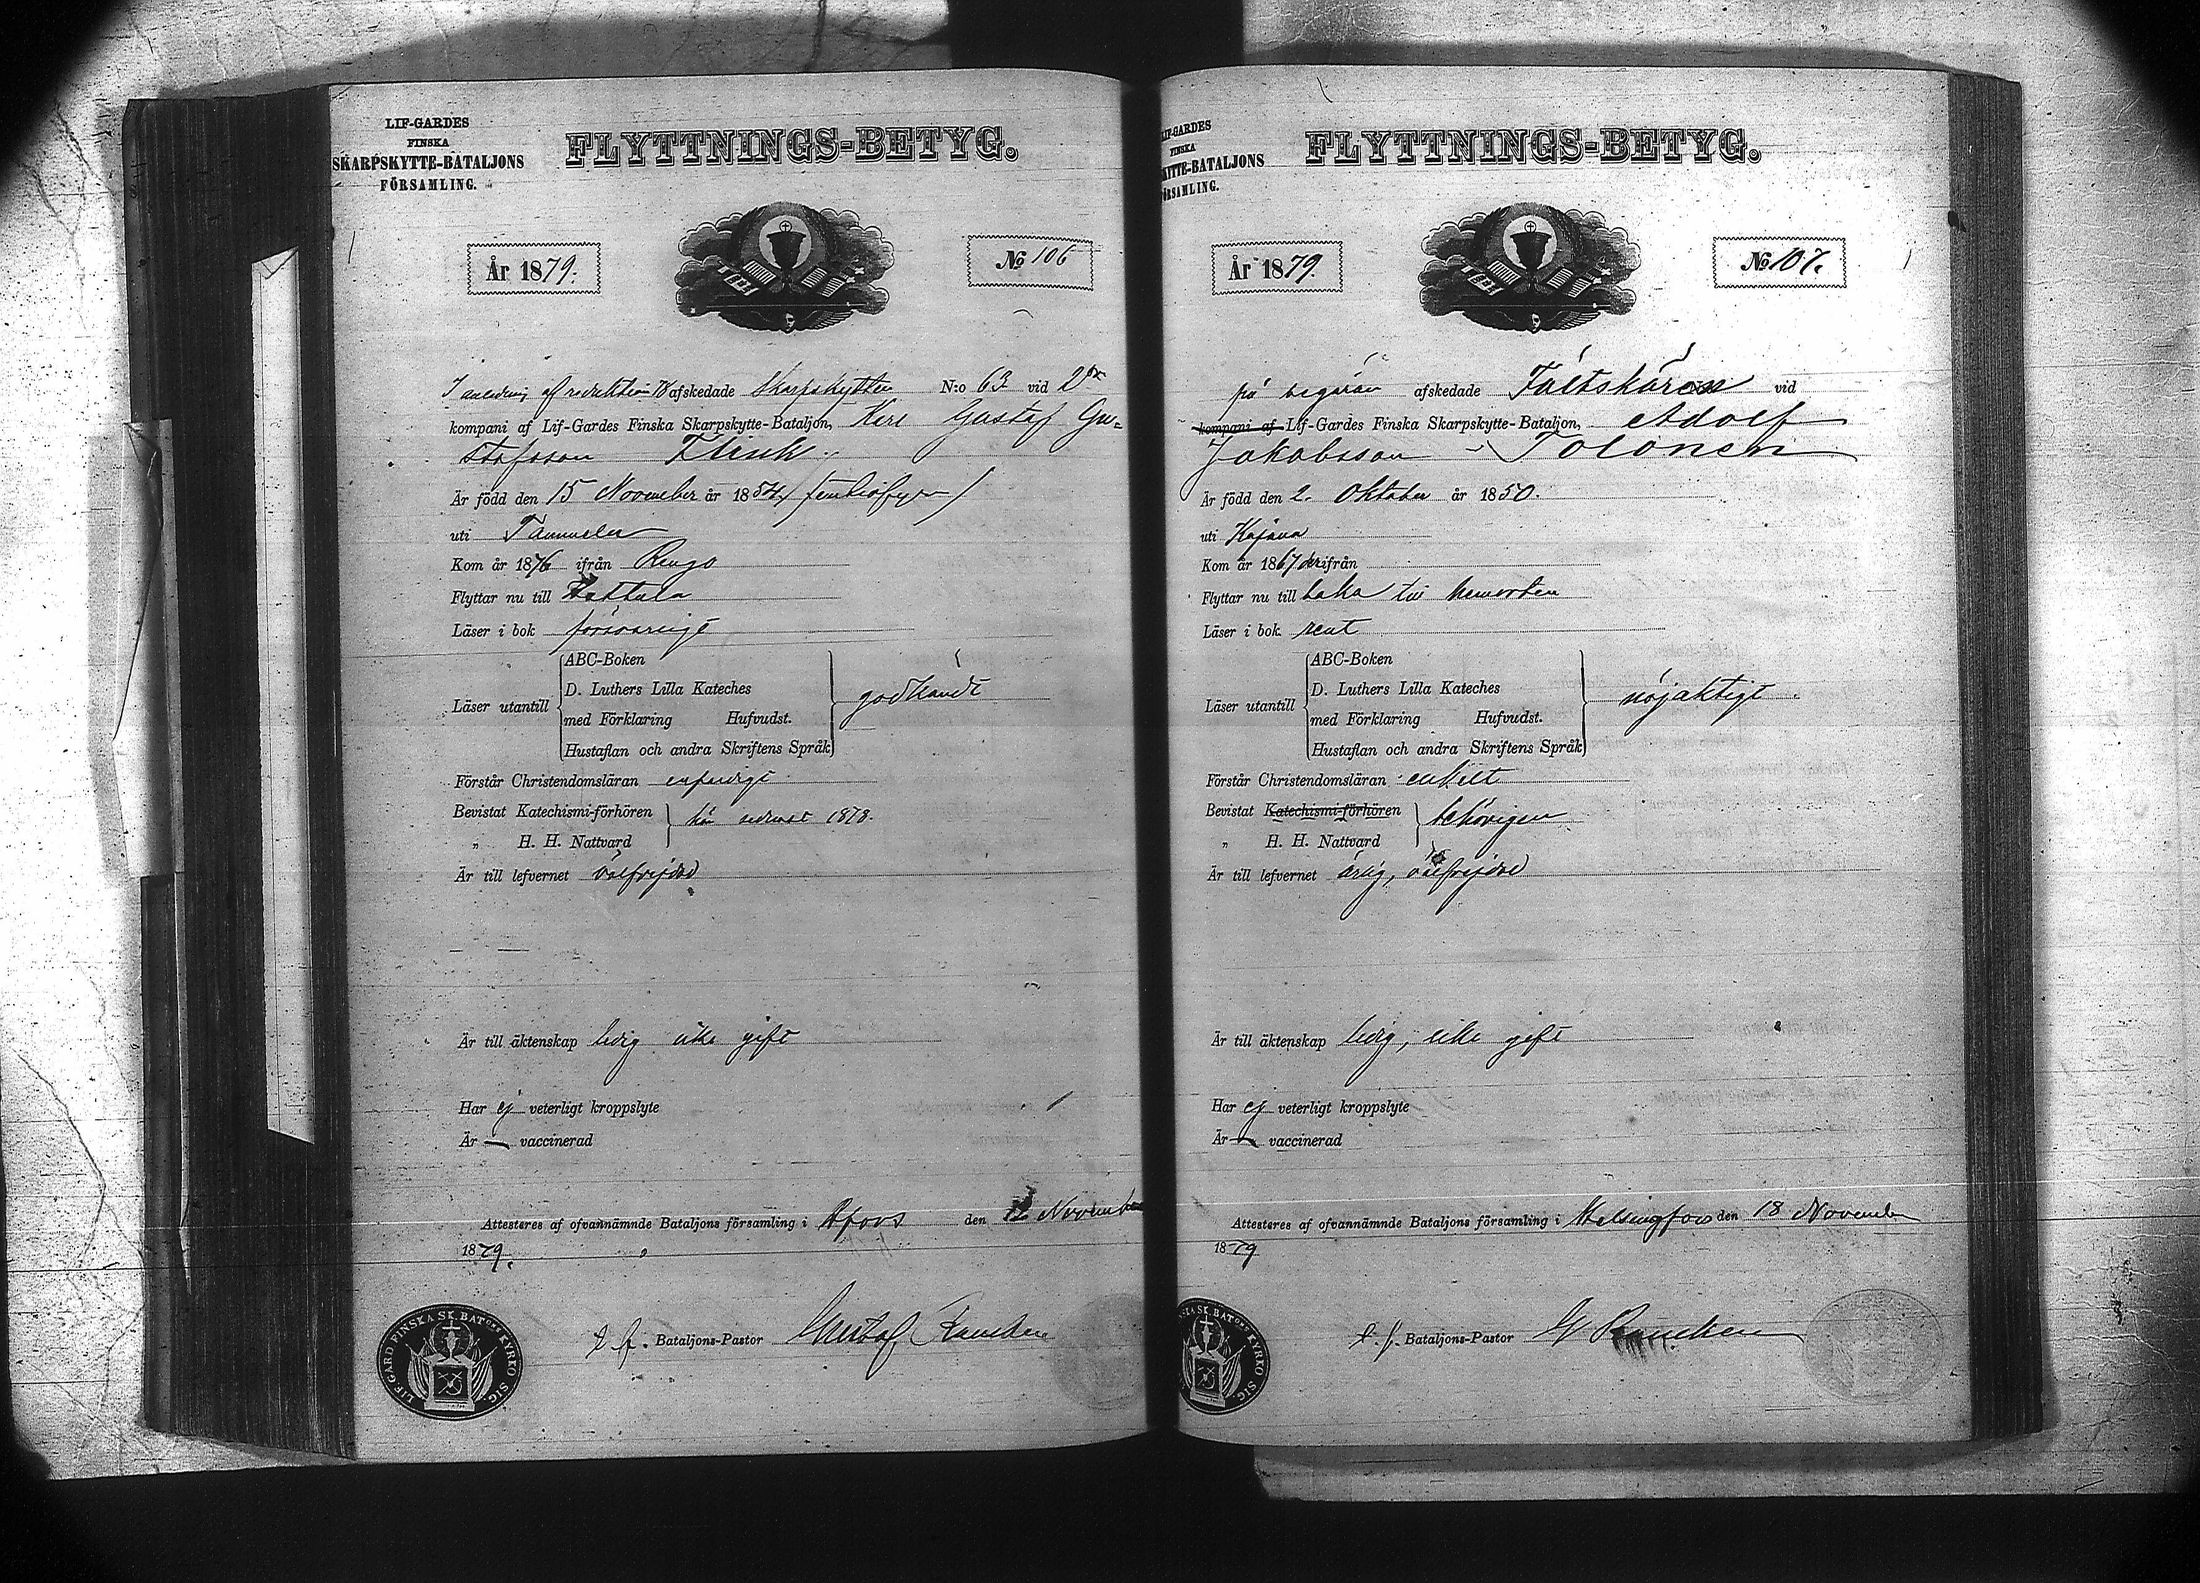 LIF-GARDES
FINSKA
SKARPSKYTTE-BATALJONS
FÖRSAMLING.
FLYTTNINGS-BETYG.
År 1879.
No 106
I anledning af reduktion afskedade Skarpskytten N:o 63 vid 2
kompani af Lif-Gardes Finska Skarpskytte-Bataljon, Karl Gustaf Gu=
stafsson Flink
Är född den 15 November år 1854 (femtiofyra)
uti Tammela
Kom år 1876 ifrån Rengo
Flyttar nu till Hattula
Läser i bok försvarligt
ABC-Boken
D. Luthers Lilla Kateches
Läser utantill godkändt
med Förklaring Hufvudst.
Hustaflan och andra Skriftens Språk
Förstår Christendomsläran enfaldigt
Bevistat Katechismi-förhören här sednast 1878.
„ H. H. Nattvard
Är till lefvernet välfrejdad
Är till äktenskap ledig icke gift
Har ej veterligt kroppslyte
Är — vaccinerad
Attesteras af ofvannämnde Bataljons församling i Hfors den 12 November
1879.
t. f. Bataljons-Pastor Gustaf Rancken
LIF.GARD.FINSKA SK.BATons KYRKO SIG.
LIF-GARDES
FINSKA
KYTTE-BATALJONS
FÖRSAMLING.
FLYTTNINGS-BETYG.
År 1879.
No 107.
på begäran afskedade Fältskären vid
kompani af Lif-Gardes Finska Skarpskytte-Bataljon, Adolf
Jakobsson Tolonen
Är född den 2. Oktober år 1850.
uti Kajana
Kom år 1867 derifrån
Flyttar nu till baka till hemorten
Läser i bok rent
ABC-Boken
D. Luthers Lilla Kateches
Läser utantill nöjaktigt
med Förklaring Hufvudst.
Hustaflan och andra Skriftens Språk
Förstår Christendomsläran enkelt
Bevistat Katechismi-förhören behörigen
„ H. H. Nattvard
Är till lefvernet ärlig, välfrejdad
Är till äktenskap ledig, icke gift
Har ej veterligt kroppslyte
Är — vaccinerad
Attesteras af ofvannämnde Bataljons församling i Helsingfors den 18 November
1879
t. f. Bataljons-Pastor G Rancken
SKA SK.BATons KYRKO SIG.